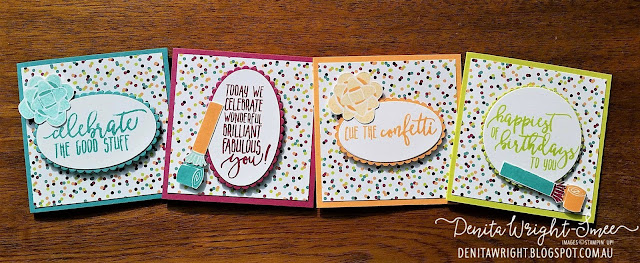 celebrate
THE GOOD STUFF
TODAY WE
CELEBRATE
WONDERFUL
BRILLIANT
FABULOUS,
you!
CUE THE confetti
happiest
of
birthdays
TO YOU
Denita Wright-Imee
IMAGES © STAMPIN' UP!®
DENITAWRIGHT.BLOGSPOT.COM.AU